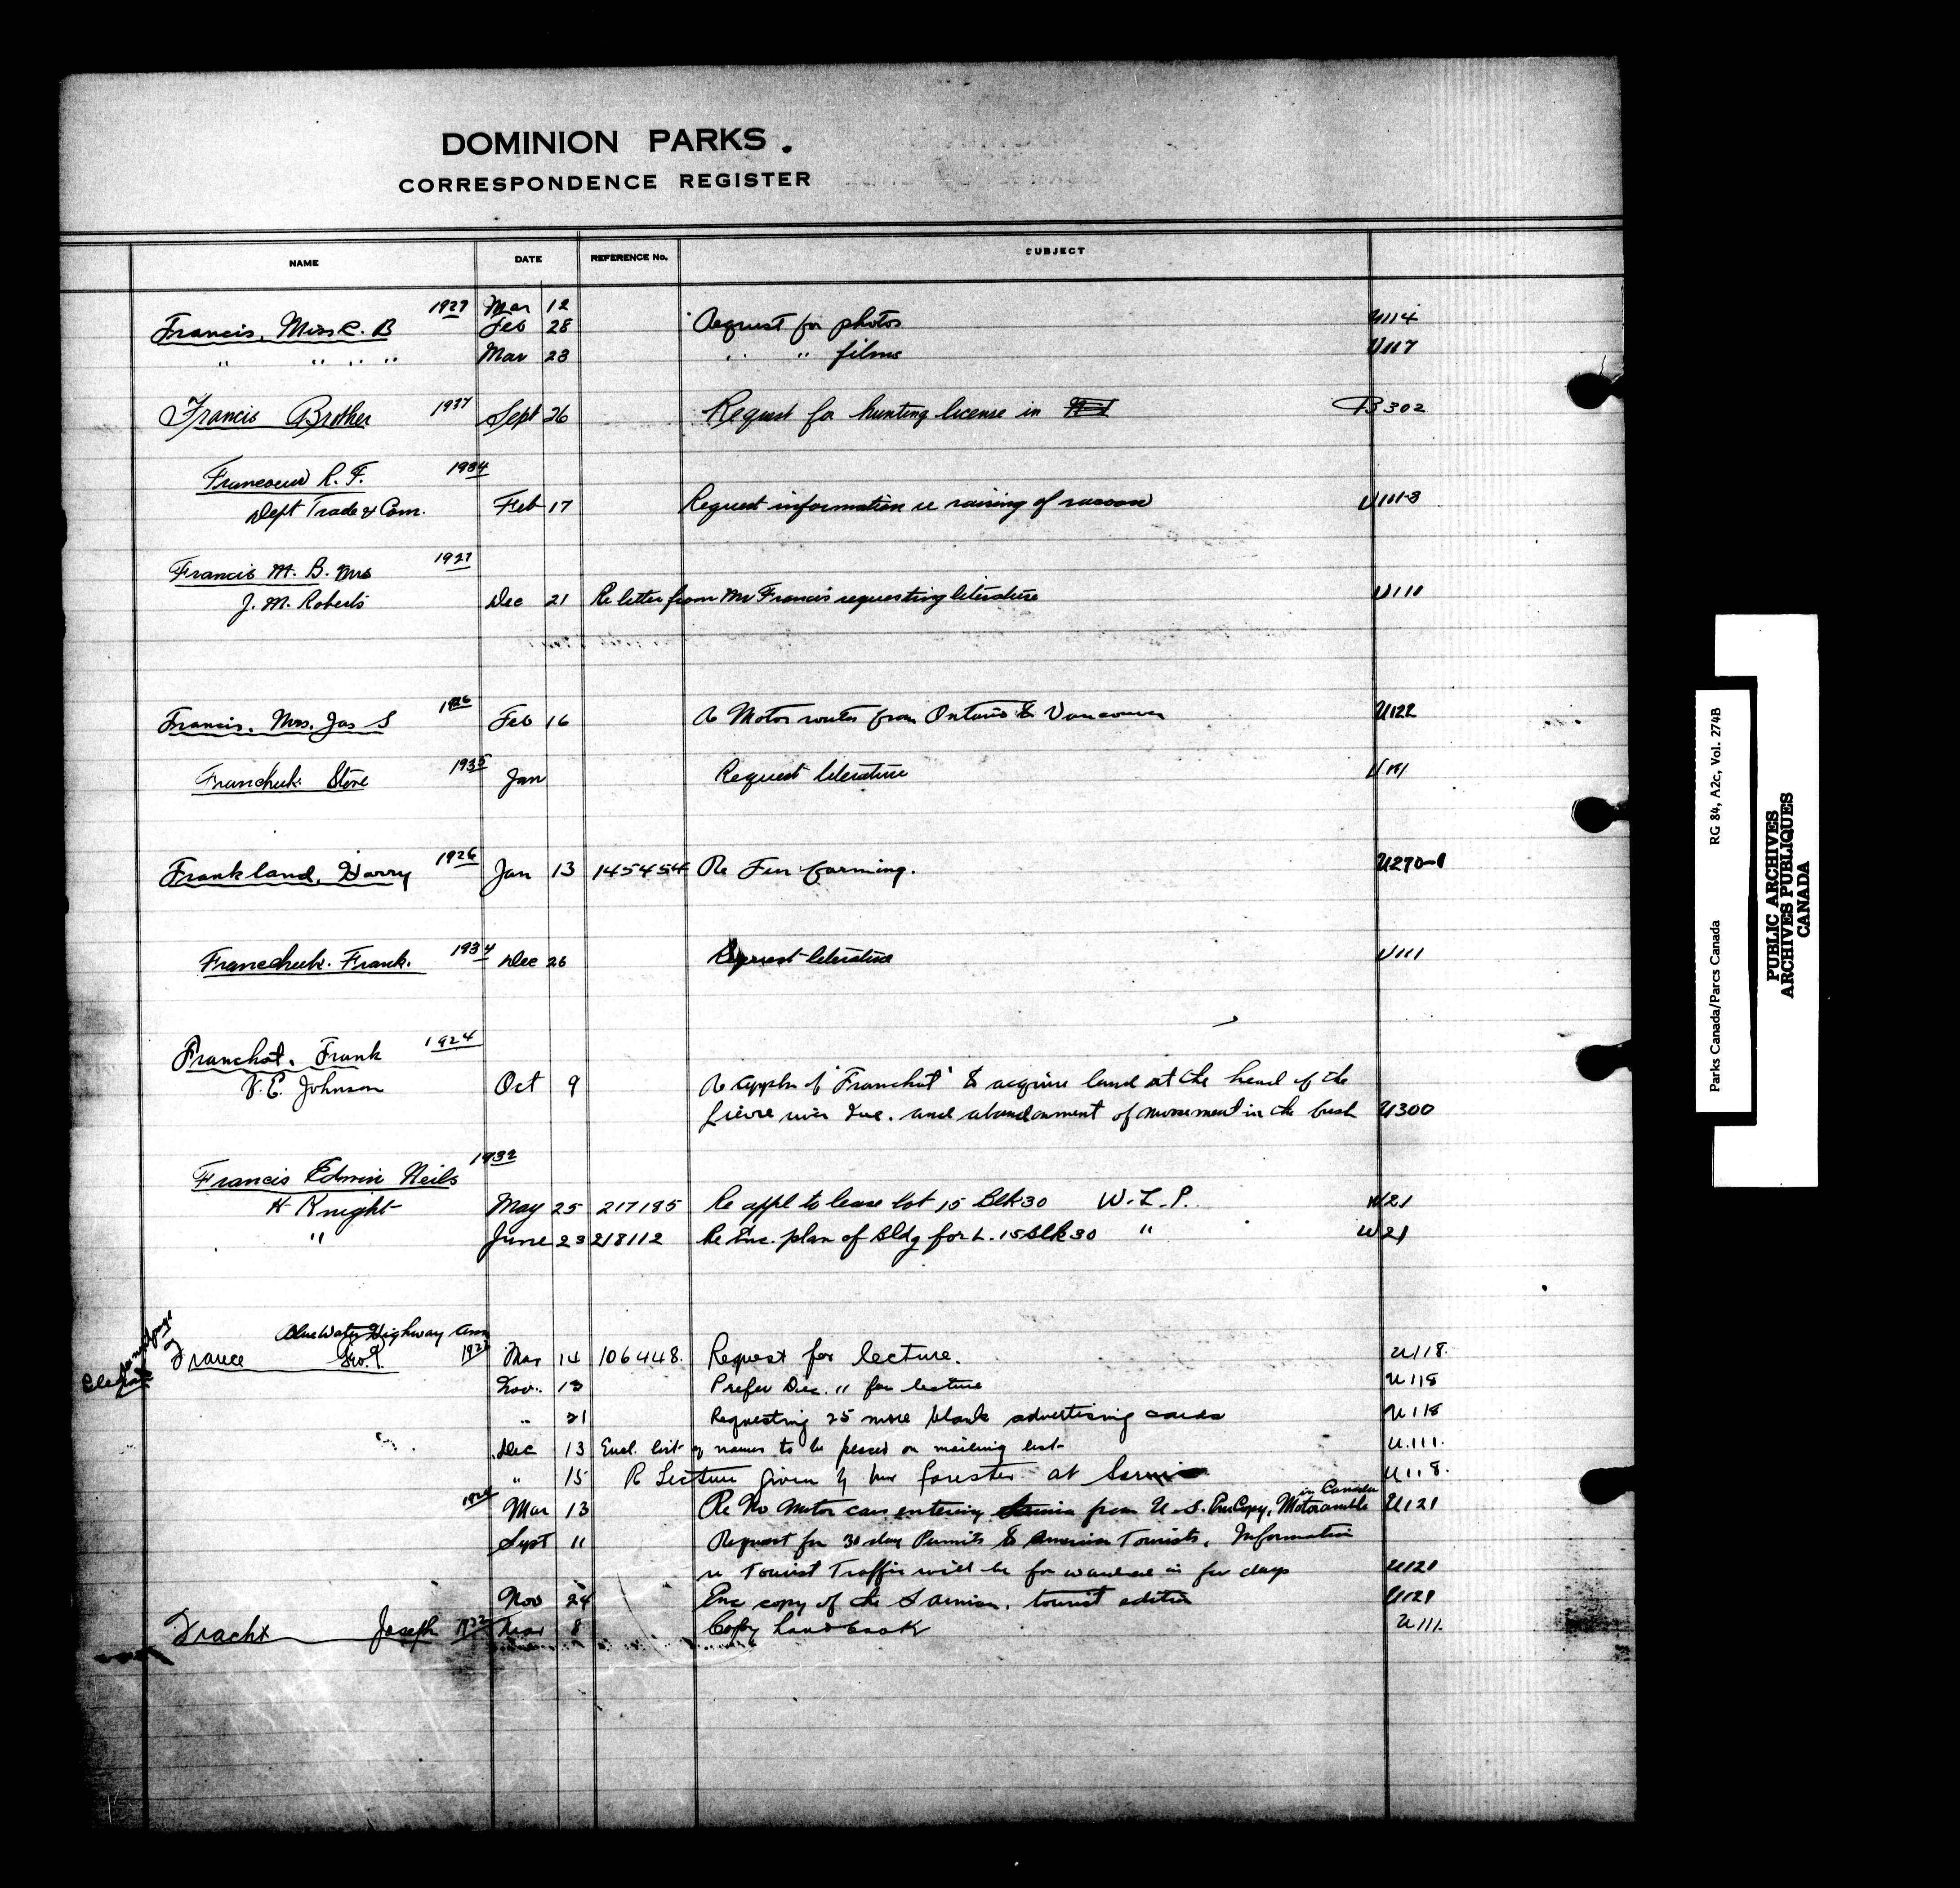 DOMINION PARKS.
CORRESPONDENCE REGISTER
NAME DATE REFERENCE No. SUBJECT
1927 Mar 12
Francis, Miss C. B Feb 28 Request for photos U114
" " " " Mar 23 " " films U117
Francis Brother 1937 Sept 26 Request for hunting license in B302
Francoeur R. F. 1934
Dept Trade & Com. Feb 17 Request information re raising of racoon U111-3
Francis M. B. Mrs 1927
J. M. Roberts Dec 21 Re letter from Mr Francis requesting literature U110
Francis, Mrs. Jas S 1926 Feb 16 Re Motor routes from Ontario to Vancouver U122
Franchuk Steve 1935 Jan Request literature U111
Frankland, Harry 1926 Jan 13 145454 Re Fur farming. U270-1
Franchuk. Frank. 1934 Dec 26 Request literature U111
Franchot, Frank 1924
V. E. Johnson Oct 9 Re appln of "Franchot" to acquire land at the head of the
Lievre river Que. and abandonment of movement in the bush U300
Francis Edwin Neils 1932
H Knight May 25 217185 Re appl to lease lot 15 Blk 30 W. L. P. W21
" June 23 218112 Re Enc. plan of Bldg for L. 15 Blk 30 " W21
Blue Water Highway Assn
France Geo. Mar 14 106448. Request for lecture. U118.
Nov. 13 Prefer Dec. 11 for lecture U118
" 21 Requesting 25 more blank advertising cards U118
Dec 13 Encl. list of names to be placed on mailing list U.111.
" 15 Re Lecture given by Mr forester at Sarnia U118.
in Canada
Mar 13 Re No Motor cars entering Sarnia from U.S. Enc Copy, Motoramble U121
Sept 11 Request for 30 day Permits to American Tourists. Information
re Tourist Traffic will be forwarded in few days U121
Nov 24 Enc copy of the Sarnian, tourist edition U121
Fracht Joseph 1922 Mar 8 Copy hand book U111.
Parks Canada/Parcs Canada RG 84, A2c, Vol. 274B
PUBLIC ARCHIVES
ARCHIVES PUBLIQUES
CANADA